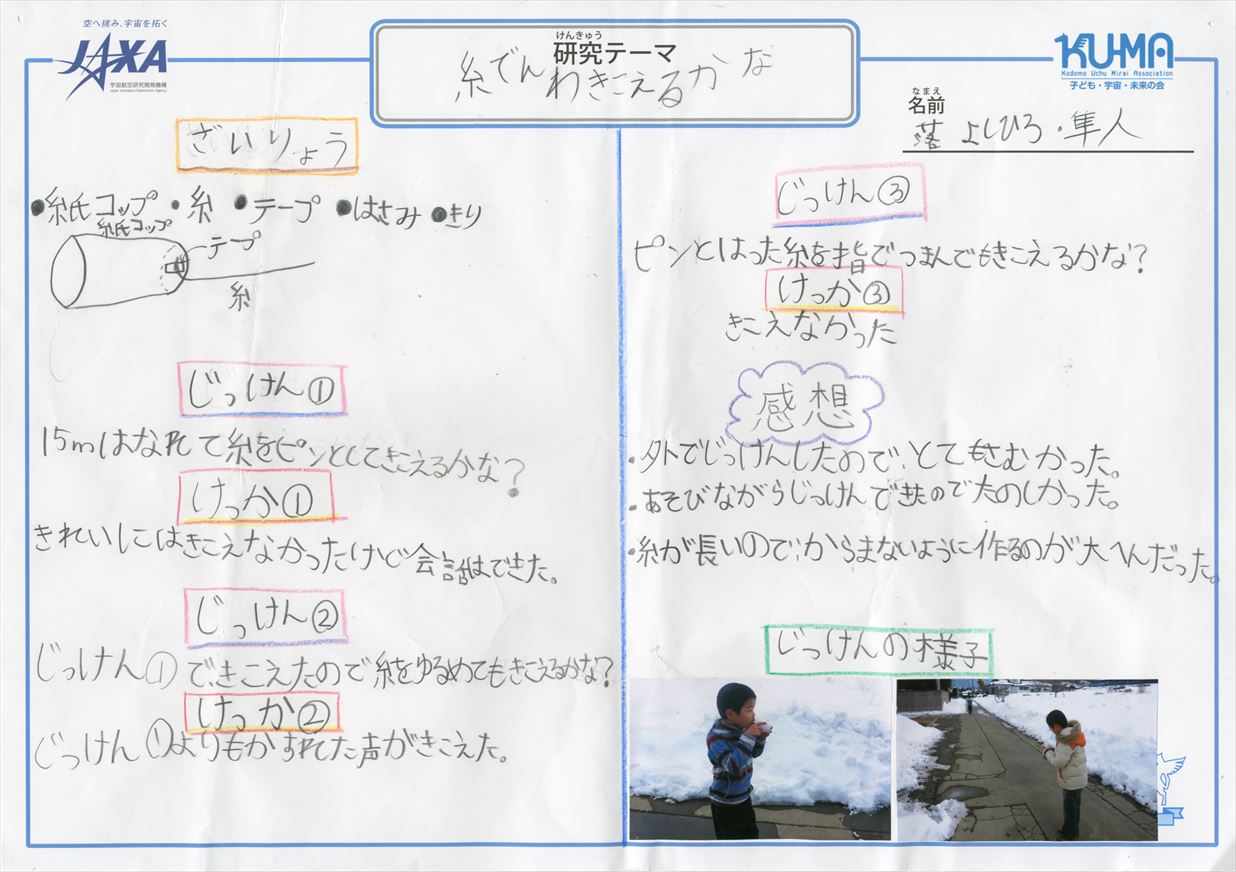 空へ挑み、宇宙を拓く
JAXA
宇宙航空研究開発機構
Japan Aerospace Exploration Agency
けんきゅう
研究テーマ
糸でんわきこえるかな
KU-MA
Kodomo Uchu Mirai Association
子ども・宇宙・未来の会
なまえ
名前
落 よしひろ・隼人
ざいりょう
●紙コップ ・糸 ●テープ ●はさみ ●きり
紙コップ
テープ
糸
じっけん①
15mはなれて糸をピンとしてきこえるかな?
けっか①
きれいにはきこえなかったけど会話はできた。
じっけん②
じっけん①できこえたので糸をゆるめてもきこえるかな?
けっか②
じっけん①よりもかすれた声がきこえた。
じっけん③
ピンとはった糸を指でつまんでもきこえるかな?
けっか③
きこえなかった
感想
・外でじっけんしたので、とてもさむかった。
・あそびながらじっけんできたのでたのしかった。
・糸が長いので、からまないように作るのが大へんだった。
じっけんの様子